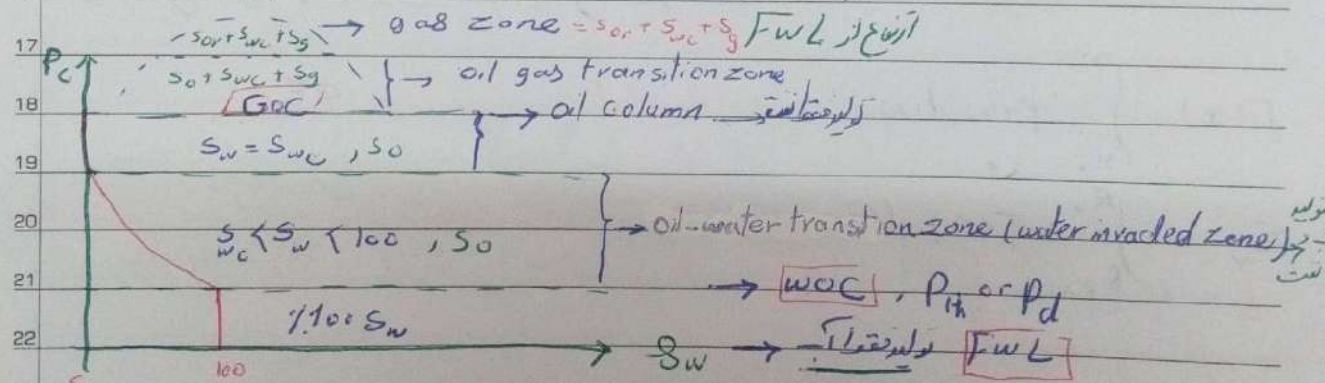 Sor + Swc + Sg → gas zone = Sor + Swc + Sg FWL ارتفاع از
17
Pc So + Swc + Sg } → oil gas transition zone
18 GOC → oil column تولید فقط نفت
Sw = Swc , So
19
20 Swc < Sw < 100 , So → oil-water transtion zone (water invaded zone) تولید
آب
نفت
21 → WOC , Pth or Pd
%100 Sw
22 Sw → تولید فقط آب FWL
100